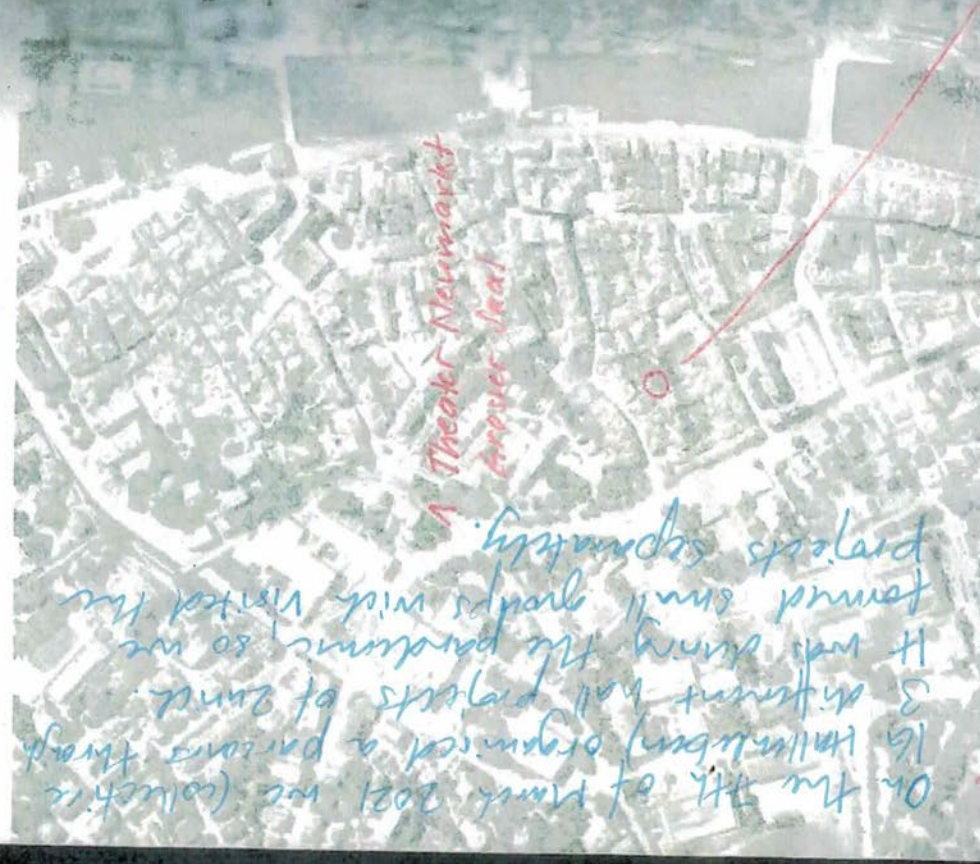 1 Theater Neumarkt
grosser Saal
On the 7th of March 2021 we (collective
IG Hallenleben) organised a parcours through
3 different hall projects of Zurich.
It was during the pandemic, so we
formed small groups wich visited the
projects separately.